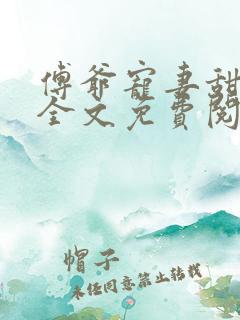 傅爷寵妻甜
全文免費閱
帽子
未经同意禁止转载